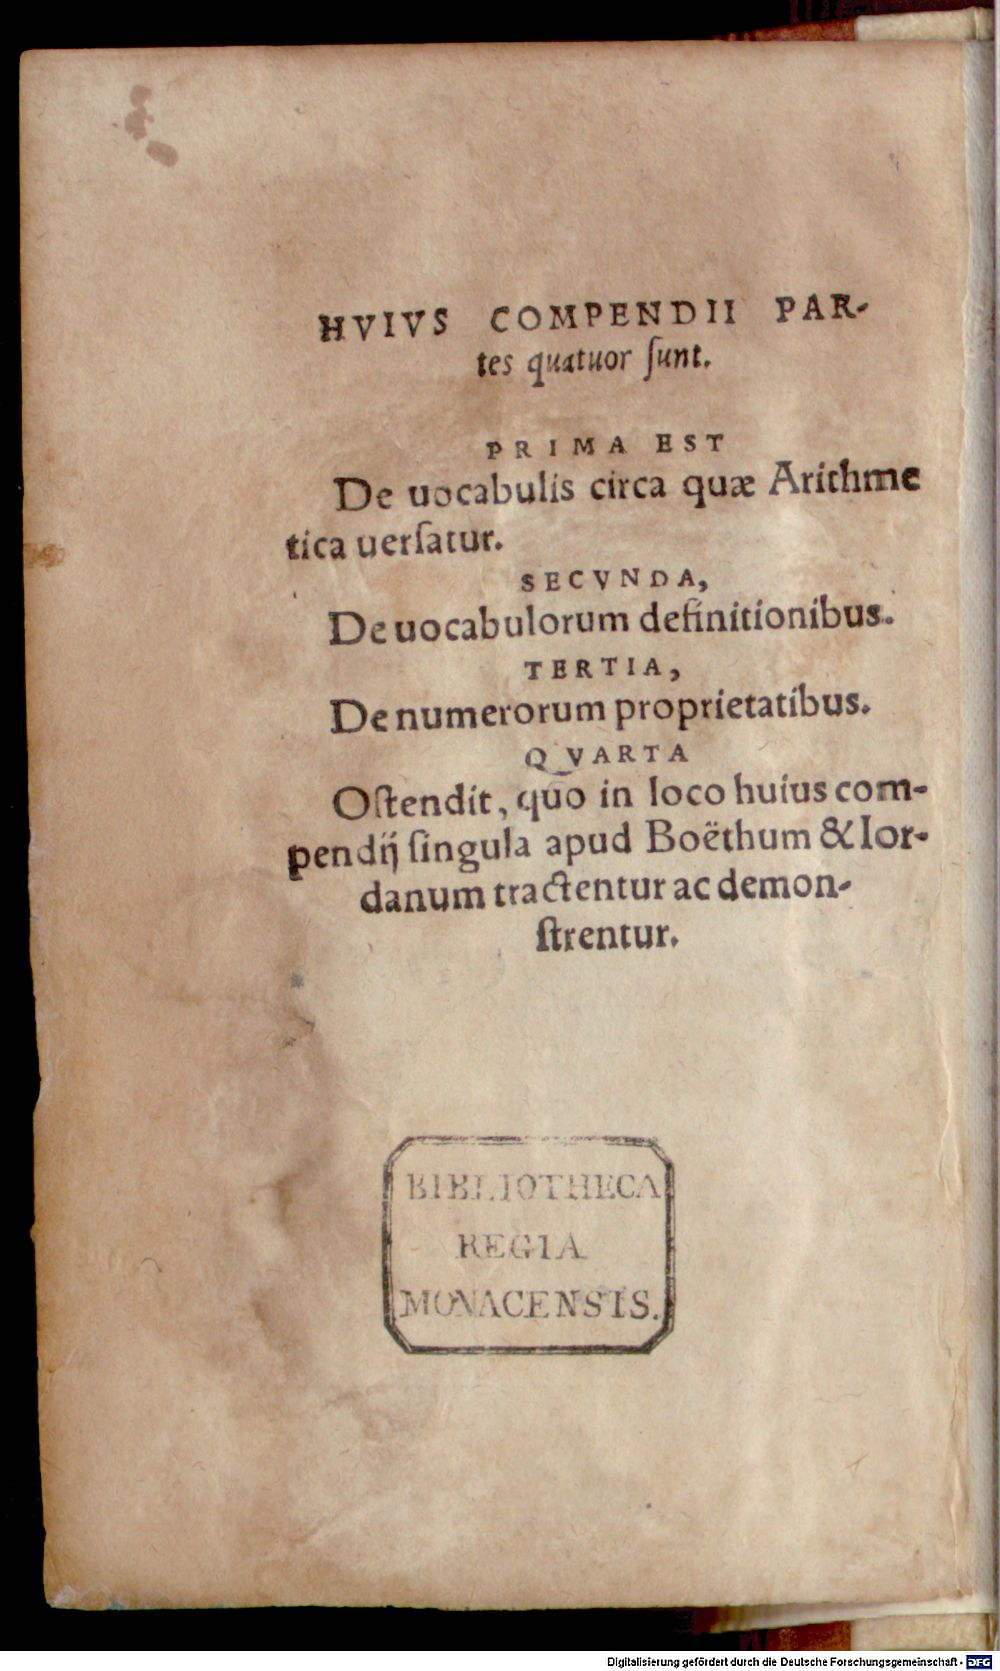 HVIVS COMPENDII PAR-
tes quatuor ſunt.
PRIMA EST
De uocabulis circa quæ Arithme
tica uerſatur.
SECVNDA,
De uocabulorum definitionibus.
TERTIA,
De numerorum proprietatibus.
QVARTA
Oſtendit, quo in loco huius com-
pendij ſingula apud Boëthum & Ior-
danum tractentur ac demon-
ſtrentur.
BIBLIOTHECA
REGIA
MONACENSIS.
Digitalisierung gefördert durch die Deutsche Forschungsgemeinschaft - DFG